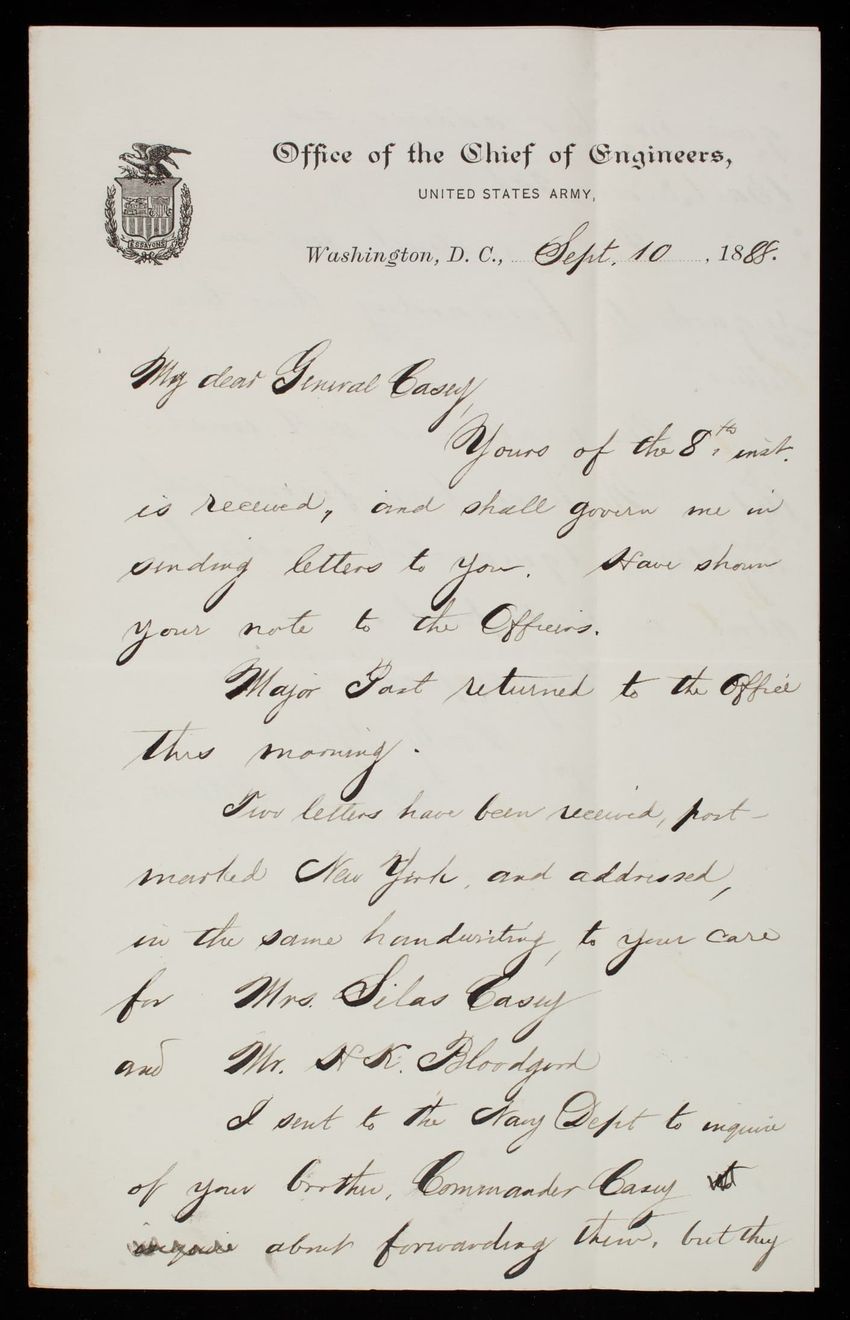 Office of the Chief of Engineers,
UNITED STATES ARMY,
ESSAYONS
Washington, D. C., Sept. 10, 1888.
My dear General Casey,
Yours of the 8th inst.
is received, and shall govern me in
sending letters to you. Have shown
your note to the Officers.
Major Post returned to the Office
this morning.
Two letters have been received, post-
marked New York, and addressed,
in the same handwriting, to your care
for Mrs. Silas Casey
and Mr. H K. Bloodgood
I sent to the Navy Dept to inquire
of your brother, Commander Casey
about forwarding them, but they